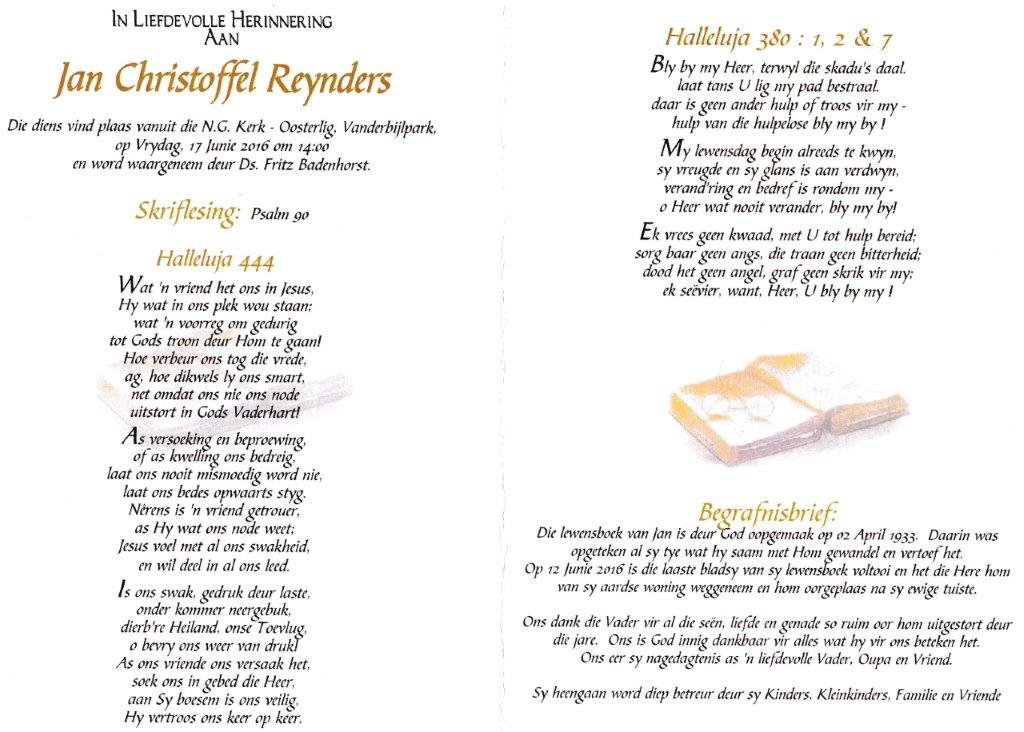 In Liefdevolle Herinnering
Aan
Jan Christoffel Reynders
Die diens vind plaas vanuit die N.G. Kerk - Oosterlig, Vanderbijlpark,
op Vrydag, 17 Junie 2016 om 14:00
en word waargeneem deur Ds. Fritz Badenhorst.
Skriflesing: Psalm 90
Halleluja 444
Wat 'n vriend het ons in Jesus,
Hy wat in ons plek wou staan;
wat 'n voorreg om gedurig
tot Gods troon deur Hom te gaan!
Hoe verbeur ons tog die vrede,
ag, hoe dikwels ly ons smart,
net omdat ons nie ons node
uitstort in Gods Vaderhart!
As versoeking en beproewing,
of as kwelling ons bedreig,
laat ons nooit mismoedig word nie,
laat ons bedes opwaarts styg.
Nêrens is 'n vriend getrouer,
as Hy wat ons node weet;
Jesus voel met al ons swakheid,
en wil deel in al ons leed.
Is ons swak, gedruk deur laste,
onder kommer neergebuk,
dierb're Heiland, onse Toevlug,
o bevry ons weer van druk!
As ons vriende ons versaak het,
soek ons in gebed die Heer,
aan Sy boesem is ons veilig,
Hy vertroos ons keer op keer.
Halleluja 380 : 1, 2 & 7
Bly by my Heer, terwyl die skadu's daal.
laat tans U lig my pad bestraal.
daar is geen ander hulp of troos vir my -
hulp van die hulpelose bly my by !
My lewensdag begin alreeds te kwyn,
sy vreugde en sy glans is aan verdwyn,
verand'ring en bedref is rondom my -
o Heer wat nooit verander, bly my by!
Ek vrees geen kwaad, met U tot hulp bereid;
sorg baar geen angs, die traan geen bitterheid;
dood het geen angel, graf geen skrik vir my;
ek seëvier, want, Heer, U bly by my !
Begrafnisbrief:
Die lewensboek van Jan is deur God oopgemaak op 02 April 1933. Daarin was
opgeteken al sy tye wat hy saam met Hom gewandel en vertoef het.
Op 12 Junie 2016 is die laaste bladsy van sy lewensboek voltooi en het die Here hom
van sy aardse woning weggeneem en hom oorgeplaas na sy ewige tuiste.
Ons dank die Vader vir al die seën, liefde en genade so ruim oor hom uitgestort deur
die jare. Ons is God innig dankbaar vir alles wat hy vir ons beteken het.
Ons eer sy nagedagtenis as 'n liefdevolle Vader, Oupa en Vriend.
Sy heengaan word diep betreur deur sy Kinders, Kleinkinders, Familie en Vriende